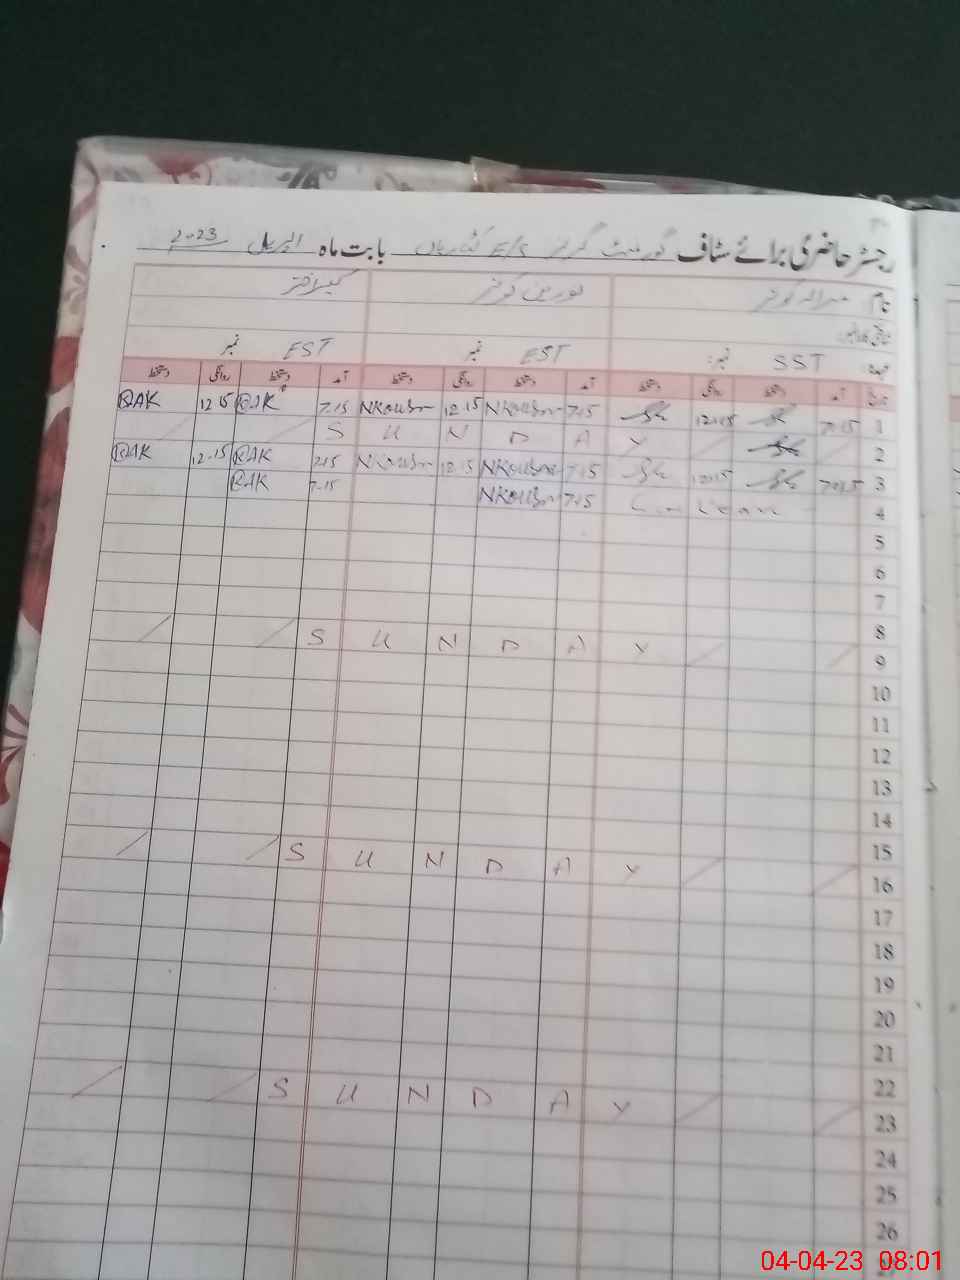 رجسٹر حاضری برائے سٹاف گورنمنٹ گرلز E/S بابت ماہ اپریل 2023
نام کوثر کوثر اختر
SST نمبر: EST نمبر EST نمبر
تاریخ آمد دستخط روانگی دستخط آمد دستخط روانگی دستخط آمد دستخط روانگی دستخط
1 7:15 12:15 7.15 NKousar 12.15 NKousar 7.15 QAK 12.15 QAK
2 S U N D A Y
3 7:15 12:15 7.15 NKousar 12.15 NKousar 7.15 QAK 12.15 QAK
4 Leave 7.15 NKousar 7.15 QAK
5
6
7
8
9 S U N D A Y
10
11
12
13
14
15
16 S U N D A Y
17
18
19
20
21
22
23 S U N D A Y
24
25
26
04-04-23 08:01